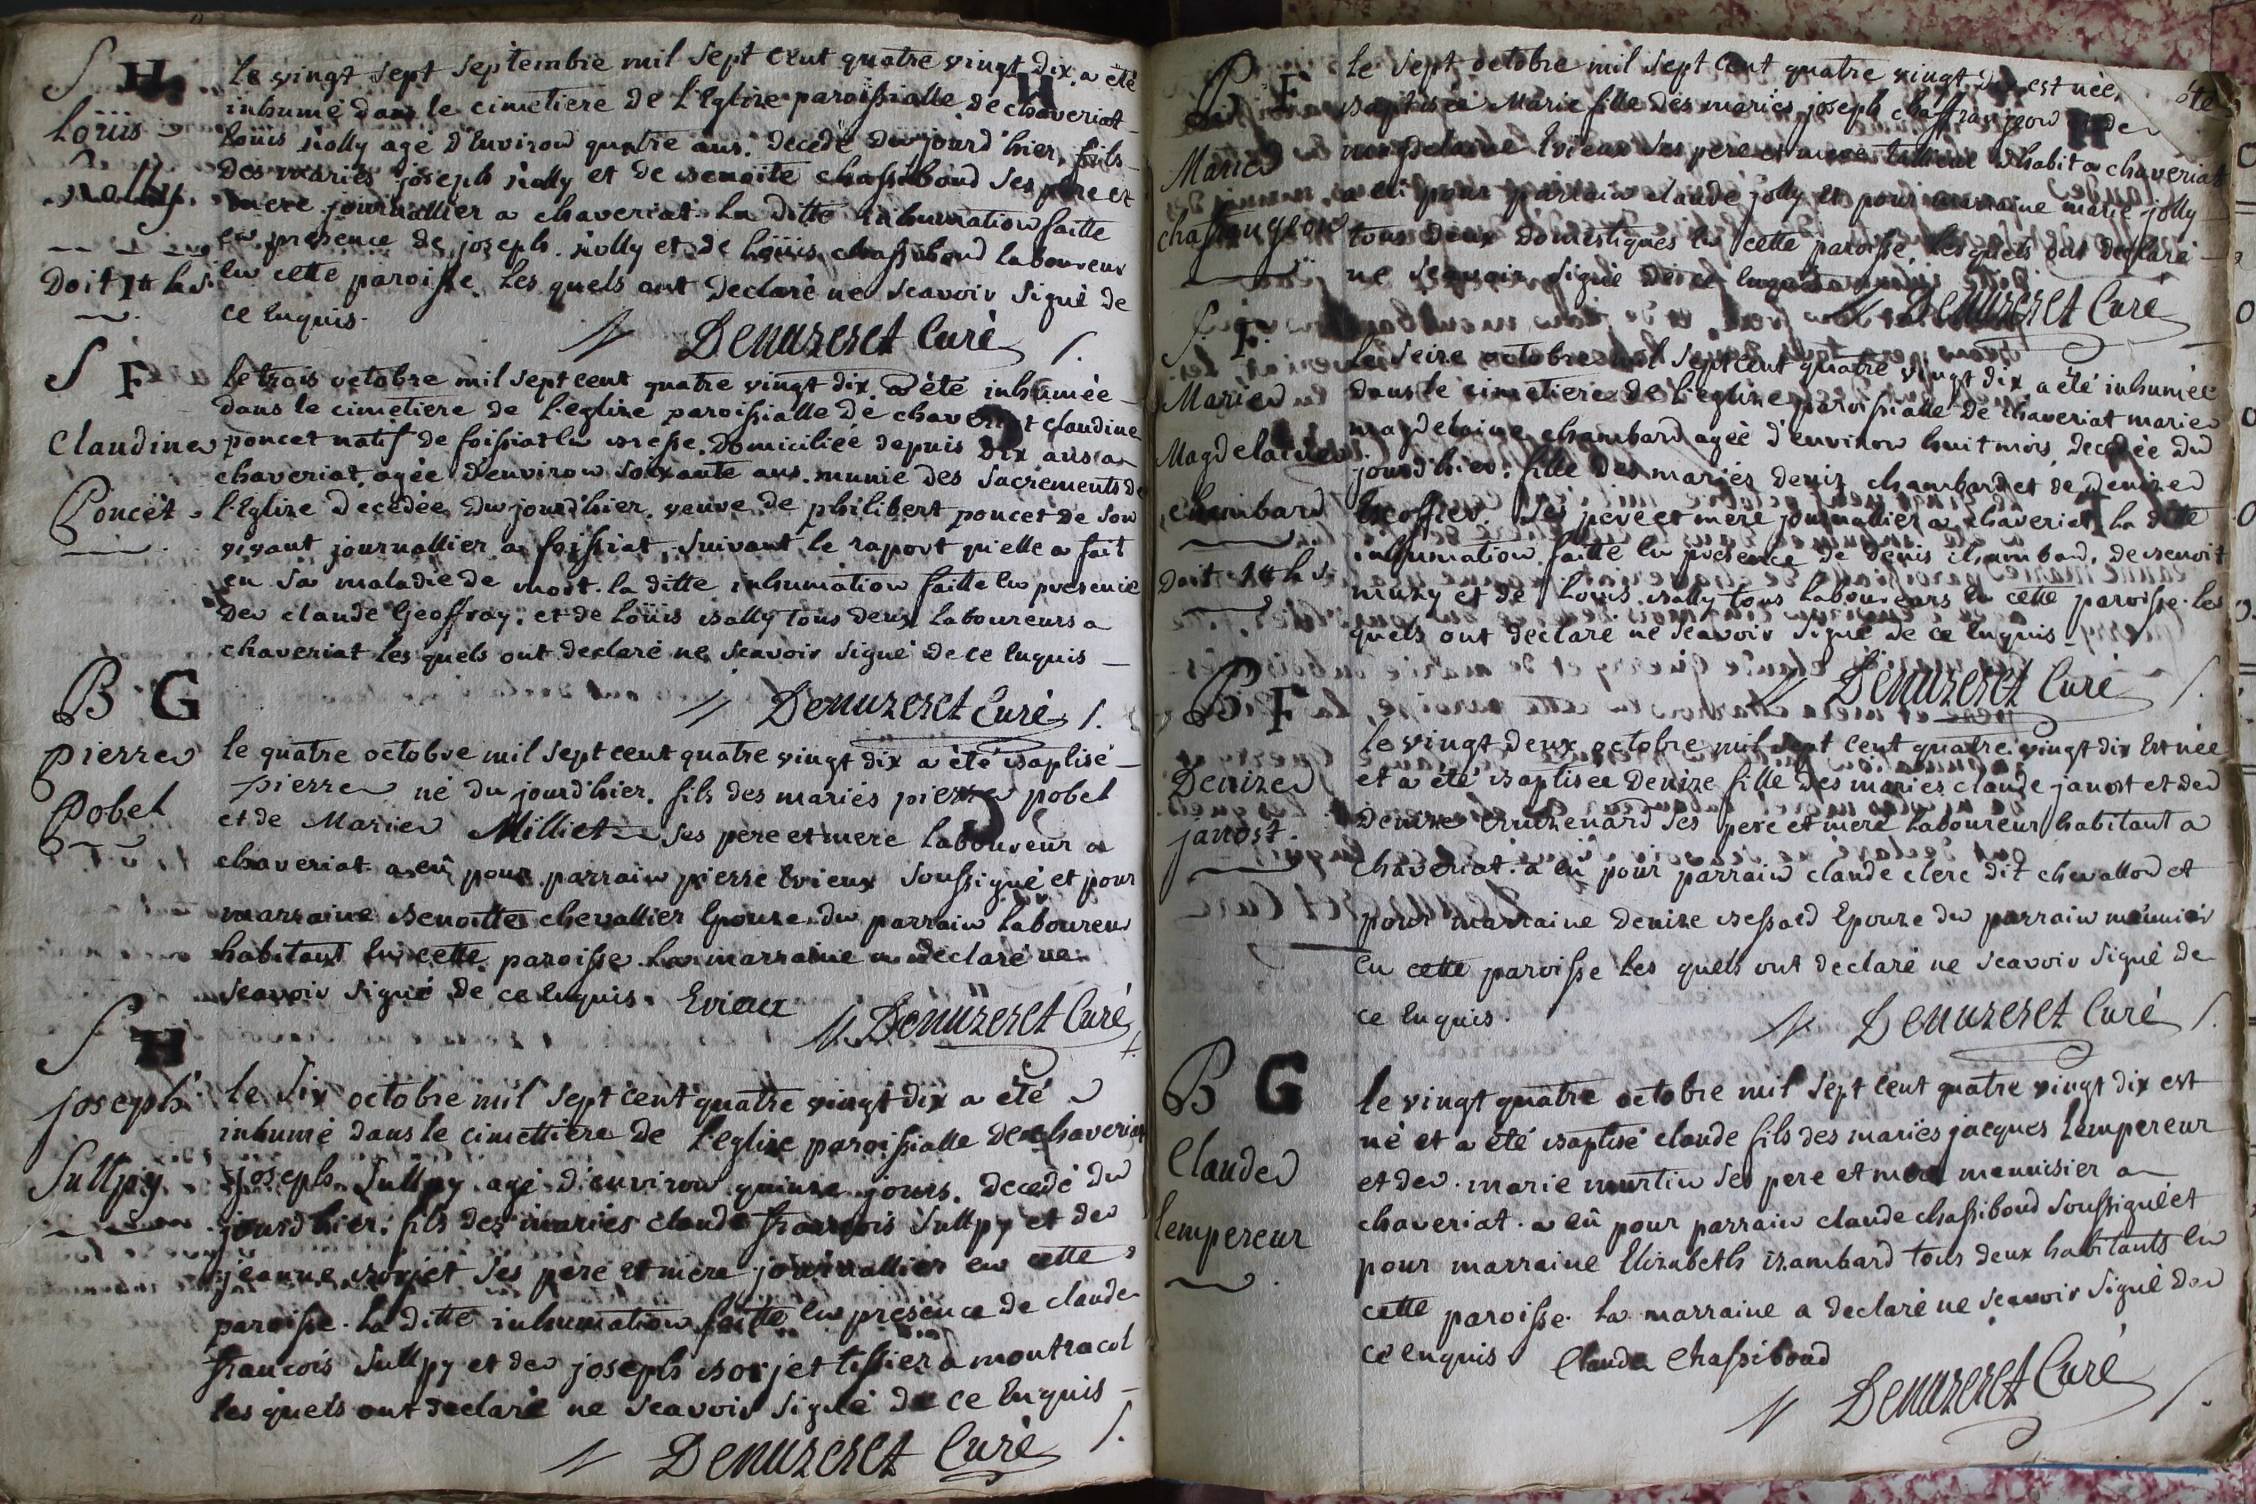 S H
Loüis
Nolly.
Doit 1tt hs.
Le vingt sept septembre mil sept cent quatre vingt dix. a été
inhumé dans le cimetiere de l'Eglize paroissialle de chaveriat
Loüis nolly agé d'Environ quatre ans. decedé du jourd'hier, fils
des mariés joseph nolly et de benoite chassiboud ses pere et
mere journallier a chaveriat. La ditte inhumation faitte
en presence de joseph nolly et de Loüis chassiboud laboureur
en cette paroisse. Les quels ont declaré ne scavoir signé de
ce Enquis.
Denuzeret Curé
S F
Claudine
Poncet
Le trois octobre mil sept cent quatre vingt dix. a été inhumée
dans le cimetiere de l'eglize paroissialle de chaveriat claudine
poncet natif de foissiat en bresse. Domiciliée depuis Dix ans a
chaveriat, agée d'environ soixante ans. munie des sacrements de
l'Eglize decedée du jourd'hier. veuve de philibert poncet de son
vivant journallier a foissiat, suivant le raport qu'elle a fait
en sa maladie de mort. la ditte inhumation faitte en presence
de claude Geoffray. et de Loüis bally tous deux Laboureurs a
chaveriat les quels ont declaré ne scavoir signé de ce Enquis
Denuzeret Curé
B G
pierre
pobel
le quatre octobre mil sept cent quatre vingt dix a été baptisé
pierre né du jourd'hier. fils des mariés pierre pobel
et de Marie Milliet ses pere et mere laboureur a
chaveriat a eû pour parrain pierre Evieux soussigné et pour
marraine benoitte chevallier Epouze du parrain laboureur
habitant En cette paroisse. La marraine a declaré ne
scavoir signé de ce Enquis. Evieux
Denuzeret Curé
S H
joseph
Sullpy
Le Six octobre mil sept cent quatre vingt dix a été
inhumé dans le cimettiere de l'eglize paroissialle de chaveriat
joseph Sullpy agé d'environ quinze jours. decedé du
jourd'hier. fils des mariés claude françois Sullpy et de
jeanne borjet ses pere et mere journallier en cette
paroisse. La ditte inhumation faitte en presence de claude
francois Sullpy et de joseph borjet tissier a montracol
les quels ont declaré ne scavoir signé de ce Enquis
Denuzeret Curé
B F
Marie
chaffangeon
Le sept octobre mil sept cent quatre vingt dix est née, été
baptisée Marie fille des mariés joseph chaffranjeon de
magdelaine Evieux ses pere et mere habit a chaveriat
a eû pour parrain claude jolly et pour marraine marie jolly
tous deux domestiques En cette paroisse. Les quels ont declaré
ne scavoir signé de ce Enquis
Denuzeret Curé
S. F.
Marie
Magdelaine
chambard
Doit 1tt hs.
Le seize octobre mil sept cent quatre vingt dix a été inhumée
dans le cimetiere de l'eglize paroissialle de chaveriat marie
magdelaine chambard agée d'environ huit mois, decedée du
jourd'hier. fille des mariés deniz chambard et de Denize
Escoffier. ses pere et mere journallier a chaveriat. la ditte
inhumation faitte En presence de denis chambard, de benoit
muzy et de Louis bally tous Laboureurs En cette paroisse. les
quels ont declaré ne scavoir signé de ce Enquis
Denuzeret Curé
B F
Denize
janost.
Le vingt deux octobre mil sept cent quatre vingt dix Est née
et a été baptisée Denize fille des mariés claude janost et de
Denize Cruzenard ses pere et mere Laboureur habitant a
chaveriat. a eû pour parrain claude clerc dit chevallon et
pour marraine Denize bessard Epouze du parrain meunier
En cette paroisse les quels ont declaré ne scavoir signé de
ce Enquis.
Denuzeret Curé
B G
Claude
Lempereur
Le vingt quatre octobre mil sept cent quatre vingt dix est
né et a été baptisé claude fils des mariés jacques Lempereur
et de marie murtin ses pere et mere menuisier a
chaveriat. a eû pour parrain claude chassiboud soussigné et
pour marraine Elizabeth izambard tous deux habitants En
cette paroisse. La marraine a declaré ne scavoir signé de
ce enquis Claude Chassiboud
Denuzeret Curé